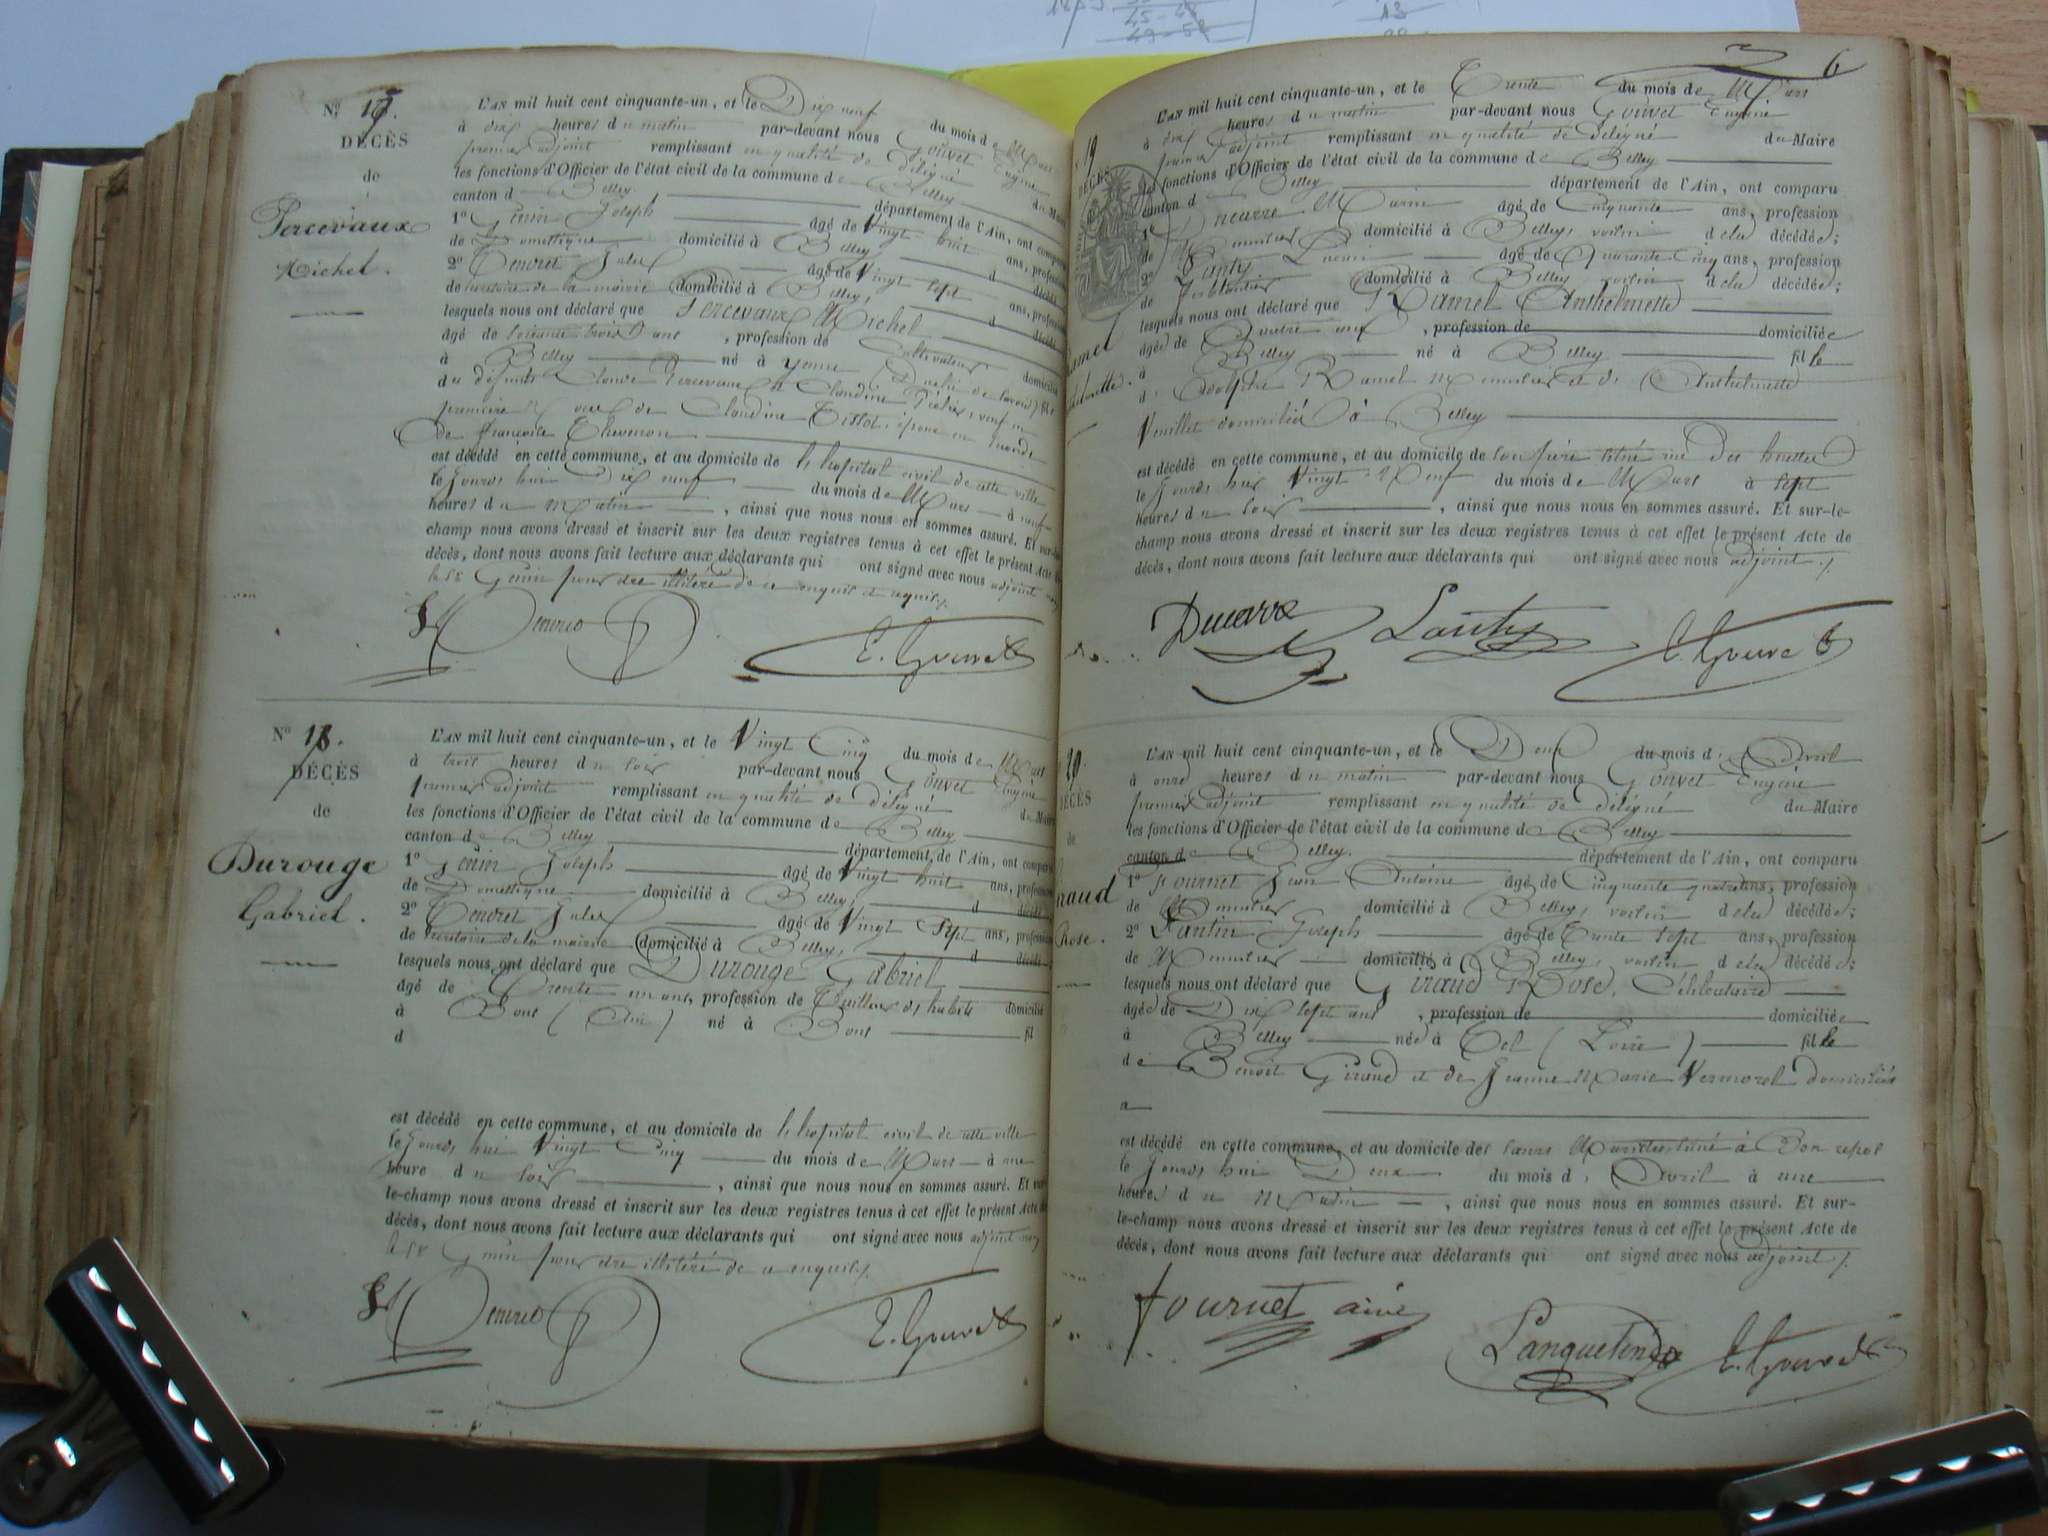 Nº 17.
DÉCÈS
de
Percevaux
Michel.
L'AN mil huit cent cinquante-un, et le Dix neuf du mois de Mars
à dix heures du matin par-devant nous Gouvet Eugène
premier adjoint remplissant en qualité de délégué du Maire
les fonctions d'Officier de l'état civil de la commune de Belley
canton de Belley département de l'Ain, ont comparu
1º Genin Joseph âgé de Vingt huit ans, profession
de Domestique domicilié à Belley, d décédé
2º Tenret Jules âgé de Vingt sept ans, profession
de secrétaire de la mairie domicilié à Belley, d décédé
lesquels nous ont déclaré que Percevaux Michel
âgé de soixante trois ans, profession de Cultivateur domicilié
à Belley né à Yenne (Duché de Savoie) fils
des défunts Claude Percevaux et Claudine veuf en
première de Claudine Tissot, époux en secondes
de Françoise Thevenon
est décédé en cette commune, et au domicile de l'hopital civil de cette ville
le Jourd'hui Dix neuf du mois de Mars à neuf
heures du Matin, ainsi que nous nous en sommes assuré. Et sur-le-
champ nous avons dressé et inscrit sur les deux registres tenus à cet effet le présent Acte de
décès, dont nous avons fait lecture aux déclarants qui ont signé avec nous adjoint non
le sr Genin pour être illitéré de ce enquis et requis.
E. Gouvet
Nº 18.
DÉCÈS
de
Durouge
Gabriel.
L'AN mil huit cent cinquante-un, et le Vingt Cinq du mois de Mars
à trois heures du soir par-devant nous Gouvet Eugène
premier adjoint remplissant en qualité de délégué du Maire
les fonctions d'Officier de l'état civil de la commune de Belley
canton de Belley département de l'Ain, ont comparu
1º Genin Joseph âgé de Vingt huit ans, profession
de Domestique domicilié à Belley, d décédé
2º Tenret Jules âgé de Vingt Sept ans, profession
de secrétaire de la mairie domicilié à Belley, d décédé
lesquels nous ont déclaré que Durouge Gabriel
âgé de Trente un ans, profession de Tailleur d'habits domicilié
à Bons (Ain) né à Bons fil
d
est décédé en cette commune, et au domicile de l'hopital civil de cette ville
le Jourd'hui Vingt Cinq du mois de Mars à une
heure du soir, ainsi que nous nous en sommes assuré. Et sur-
le-champ nous avons dressé et inscrit sur les deux registres tenus à cet effet le présent Acte de
décès, dont nous avons fait lecture aux déclarants qui ont signé avec nous adjoint non
le sr Genin pour être illitéré de ce enquis.
E. Gouvet
6
19
DÉCÈS
L'AN mil huit cent cinquante-un, et le Trente du mois de Mars
à dix heures du matin par-devant nous Gouvet Eugène
premier adjoint remplissant en qualité de délégué du Maire
les fonctions d'Officier de l'état civil de la commune de Belley
canton de Belley département de l'Ain, ont comparu
1º Ducarre Marin âgé de Cinquante ans, profession
de Menuisier domicilié à Belley, voisin de la décédée;
2º Lanty âgé de Quarante Cinq ans, profession
de Ferblantier domicilié à Belley voisin de la décédée;
lesquels nous ont déclaré que Ramel Anthelmette
âgée de Quatre ans, profession de domiciliée
à Belley né à Belley fille
d'Adolphe Ramel Menuisier et de Anthelmette
Vuillet domiciliés à Belley
est décédé en cette commune, et au domicile de son père situé rue des
le Jourd'hui Vingt Neuf du mois de Mars à sept
heures du soir, ainsi que nous nous en sommes assuré. Et sur-le-
champ nous avons dressé et inscrit sur les deux registres tenus à cet effet le présent Acte de
décès, dont nous avons fait lecture aux déclarants qui ont signé avec nous adjoint.
Ducarre Lanty E. Gouvet
20.
DÉCÈS
de
naud
Rose.
L'AN mil huit cent cinquante-un, et le Deux du mois d'Avril
à onze heures du matin par-devant nous Gouvet Eugène
premier adjoint remplissant en qualité de délégué du Maire
les fonctions d'Officier de l'état civil de la commune de Belley
canton de Belley. département de l'Ain, ont comparu
1º Fournet Jean Antoine âgé de Cinquante quatre ans, profession
de Menuisier domicilié à Belley, voisin de la décédée;
2º Joseph âgé de Trente sept ans, profession
de Menuisier domicilié à Belley, voisin de la décédée;
lesquels nous ont déclaré que Giraud Rose, Célibataire
âgée de Dix sept ans, profession de domiciliée
à Belley née à (Loire) fille
de Benoit Giraud et de Jeanne Marie Vermorel domiciliés
a
est décédé en cette commune, et au domicile des sœurs Maristes situé à Bon repos
le Jourd'hui Deux du mois d'Avril à une
heures du Matin, ainsi que nous nous en sommes assuré. Et sur-
le-champ nous avons dressé et inscrit sur les deux registres tenus à cet effet le présent Acte de
décès, dont nous avons fait lecture aux déclarants qui ont signé avec nous adjoint.
fournet ainé
E. Gouvet